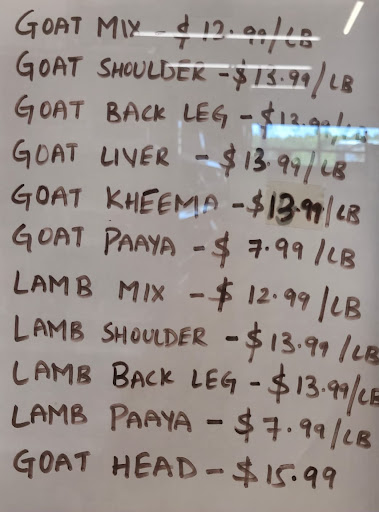 GOAT MIX - $ 12.99/LB
GOAT SHOULDER - $13.99/LB
GOAT BACK LEG - $13.99/LB
GOAT LIVER - $13.99/LB
GOAT KHEEMA - $13.99/LB
GOAT PAAYA - $ 7.99/LB
LAMB MIX - $ 12.99/LB
LAMB SHOULDER - $13.99/LB
LAMB BACK LEG - $13.99/LB
LAMB PAAYA - $7.99/LB
GOAT HEAD - $15.99